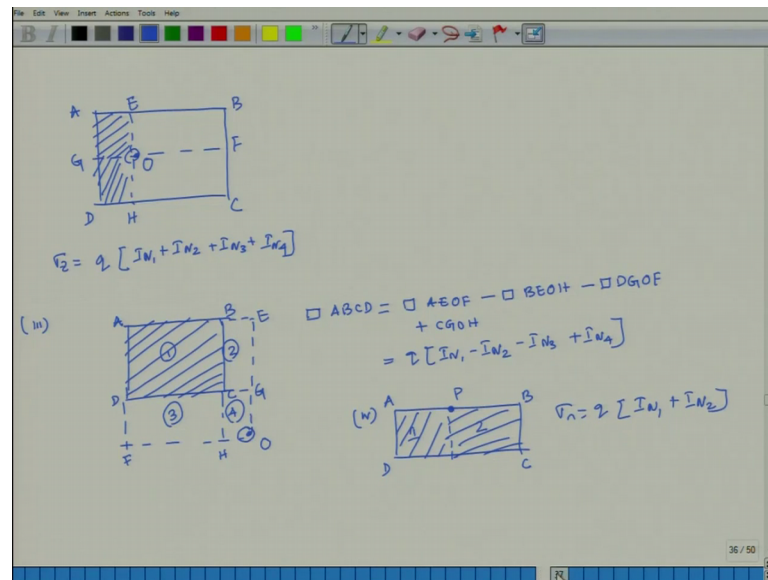 File Edit View Insert Actions Tools Help
B I
A E B
G O F
D H C
σz = q [IN1 + IN2 + IN3 + IN4]
(III)
A B E
① ②
D C G
③ ④
F H O
□ ABCD = □ AEOF − □ BEOH − □ DGOF
+ CGOH
= q [IN1 − IN2 − IN3 + IN4]
(IV)
A P B
1 2
D C
σn = q [IN1 + IN2]
36 / 50